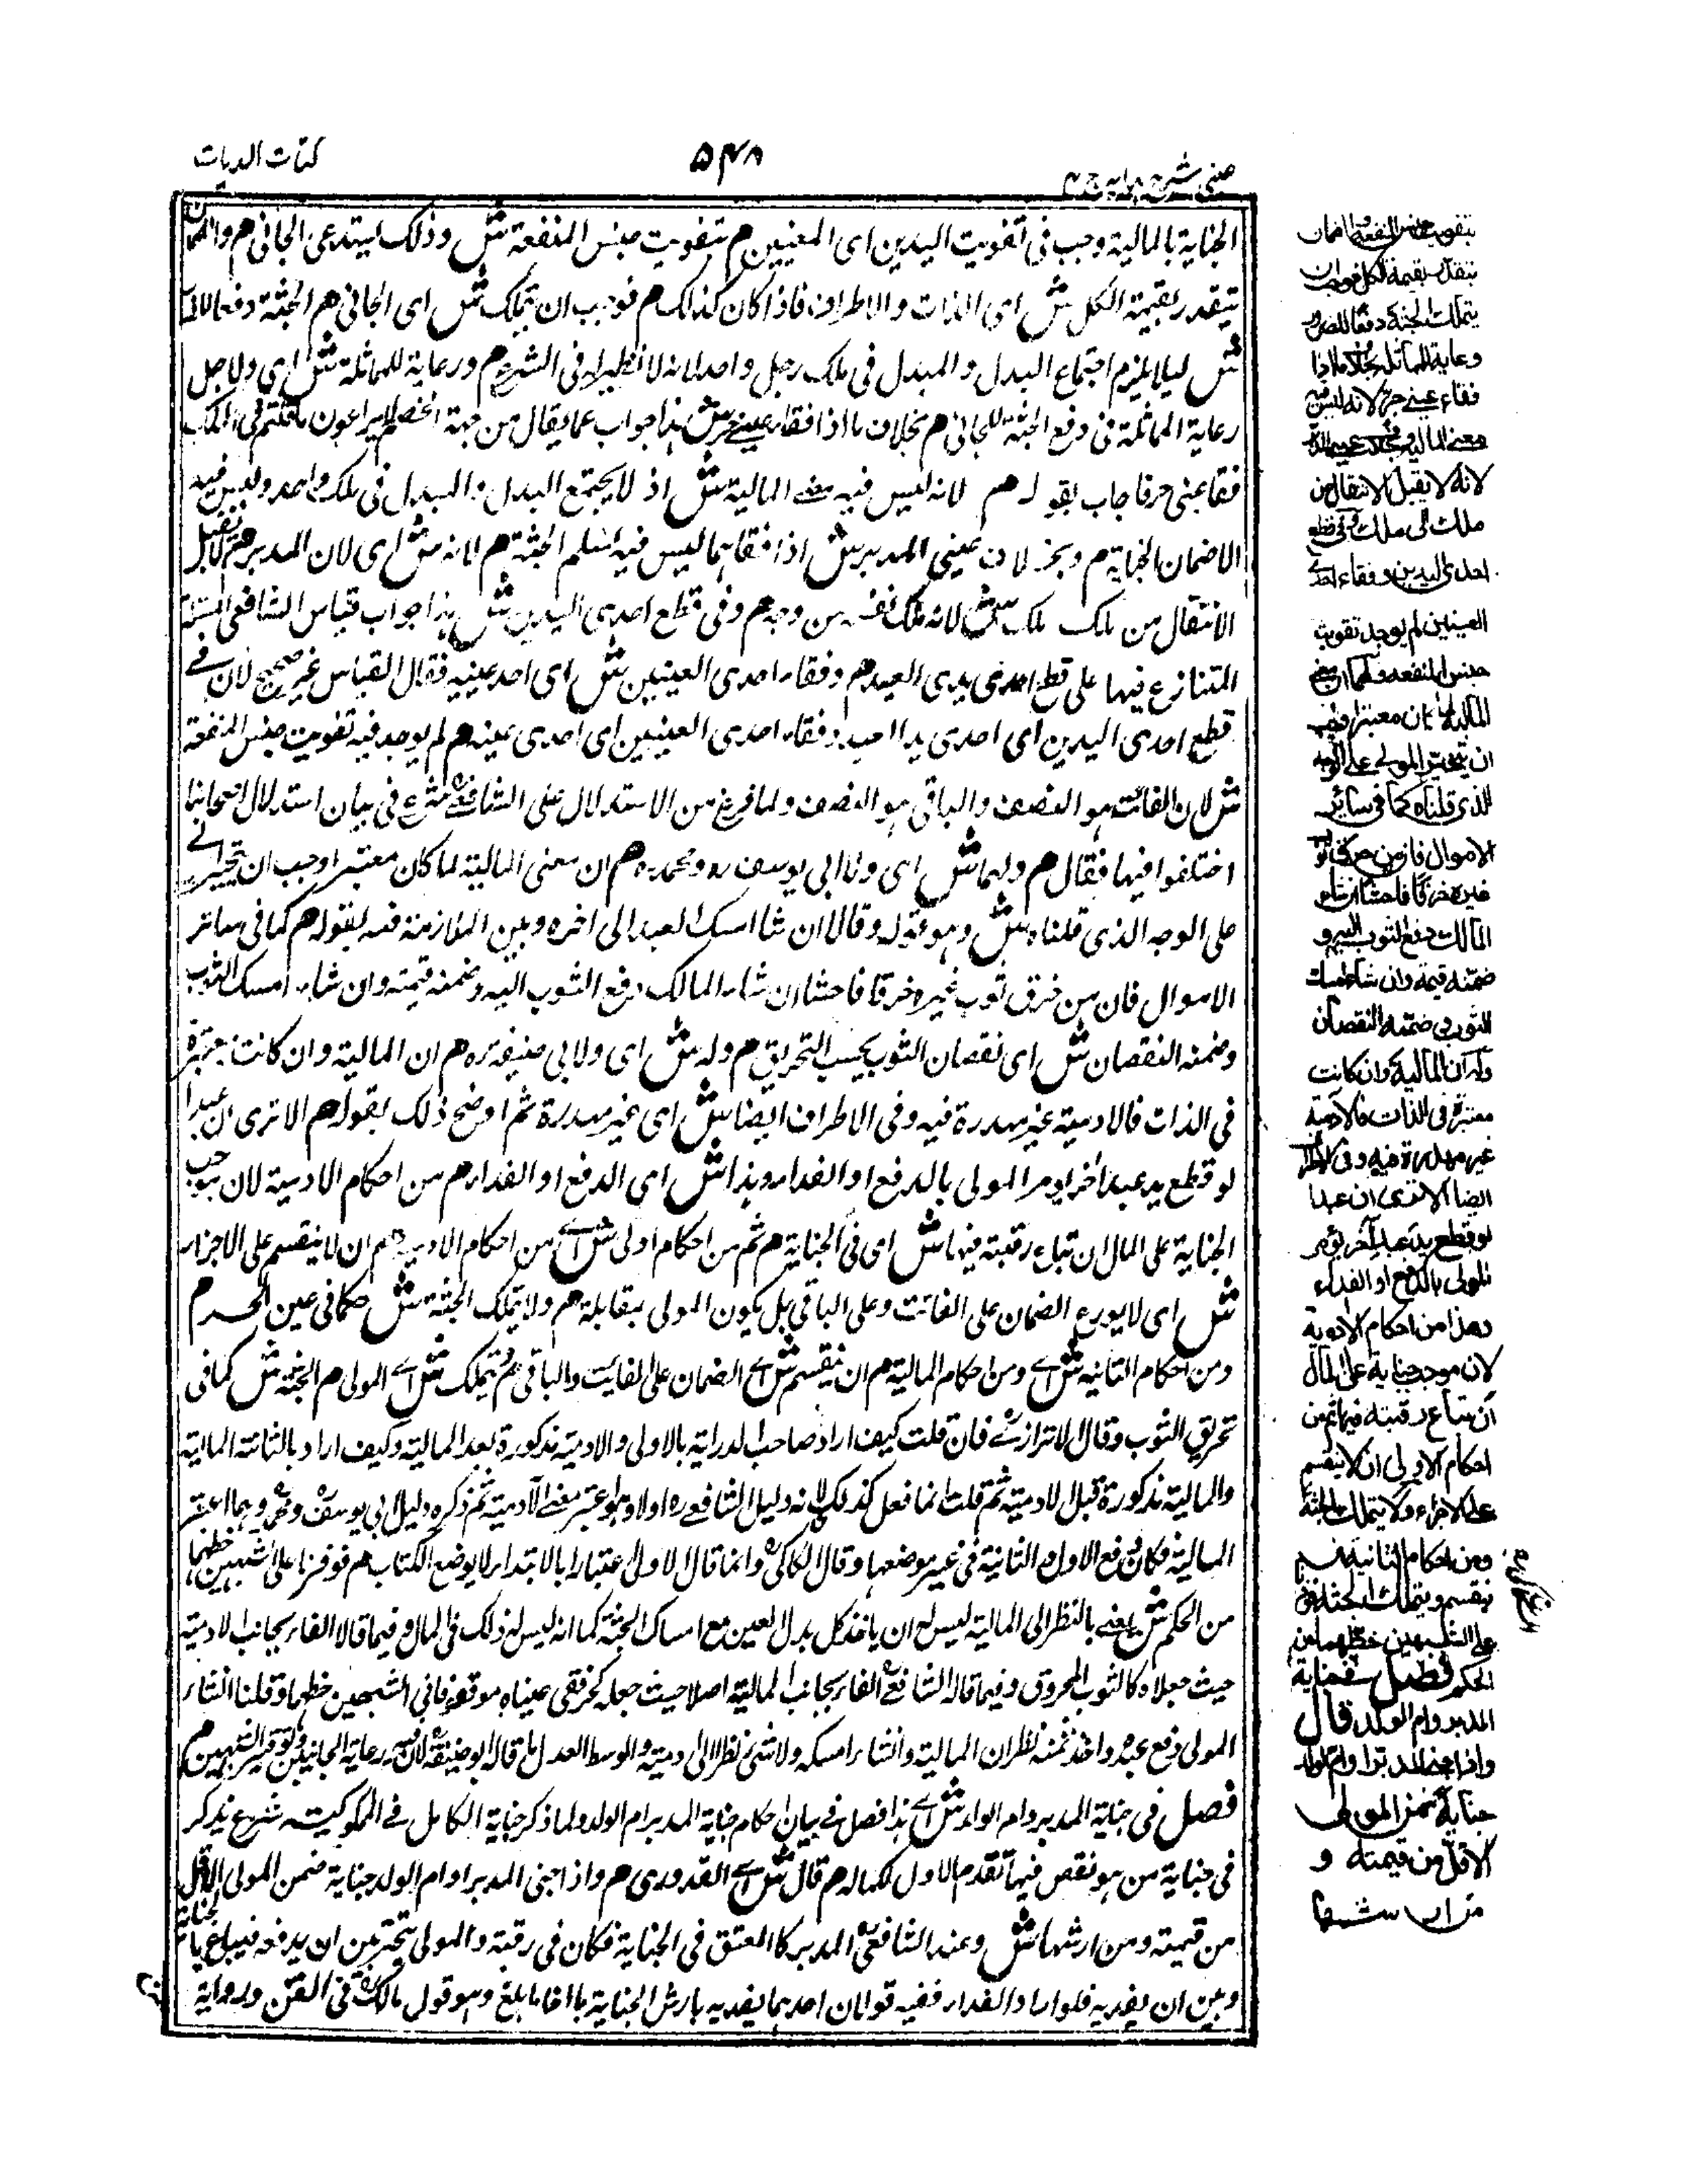 عینی شرح هدایه ج ۴
۵۴۸
کتاب الدیات
الجنایة بالمالیة وجب فی تفویت الیدین ای المعنیین م بتفویت جنس المنفعة ش وذلک یستدعی الجانی م والضمان
یتقدر بقیمة الکل ش ای الذات والاطراف فاذا کان کذلک م فوجب ان یتملک ش ای الجانی م الجثة دفعا للضرر
ش لیلا یلزم اجتماع البدل والمبدل فی ملک رجل واحد لانه لا نظیر له فی الشرع م ورعایة للمماثلة ش ای ولاجل
رعایة المماثلة فی دفع الجثة للجانی م بخلاف ما اذا فقاء عینی حر ش هذا جواب عما یقال من جهة الخصم لا یراعون ما قلتم فی الملک
فقا عینی حر فاجاب بقوله م لانه لیس فیه معنی المالیة ش اذ لا یجتمع البدل والمبدل فی ملک واحد ولیس فیه
الا ضمان الجنایة م وبخلاف عینی المدبر ش اذا فقاهما لیس فیه تسلم الجثة م لانه ش ای لان المدبر م لا یقبل
الانتقال من ملک ملک ش لانه ملک نفسه من وجه م وفی قطع احدی الیدین ش هذا جواب قیاس الشافعی المسئلة
المتنازع فیها علی قطع احدی یدی العبد م وفقاء احدی العینین ش ای احد عینیه فقال القیاس غیر صحیح لان فی
قطع احدی الیدین ای احدی یدا العبد وفقاء احدی العینین ای احدی عینه م لم یوجد فیه تفویت جنس المنفعة
ش لان الفائت هو النصف والباقی هو النصف ولما فرغ من الاستدلال علی الشافعی شرع فی بیان استدلال اصحابنا
اختلفوا فیها فقال م ولهما ش ای ولابی یوسف ره ومحمد ره م ان معنی المالیة لما کان معتبرا وجب ان یتخیر
علی الوجه الذی قلناه ش وهو قوله وقالا ان شا امسک العبد الی اخره وبین الملازمة فیه بقوله م کما فی سائر
الاموال فان من خرق ثوب غیره خرقا فاحشا ان شاء المالک دفع الثوب الیه وضمنه قیمته وان شاء امسک الثوب
وضمنه النقصان ش ای نقصان الثوب بحسب التخریق م وله ش ای ولابی حنیفة ره م ان المالیة وان کانت معتبرة
فی الذات فالادمیة غیر مهدرة فیه وفی الاطراف ایضا ش ای غیر مهدرة ثم اوضح ذلک بقوله م الا تری ان عبدا
لو قطع ید عبد اخر یؤمر المولی بالدفع او الفداء وهذا ش ای الدفع او الفداء م من احکام الادمیة لان موجب
الجنایة علی المال ان تباع رقبته فیها ش ای فی الجنایة م ثم من احکام اولی ش ای من احکام الادمیة م ان لا ینقسم علی الاجزاء
ش ای لا یوزع الضمان علی الفائت وعلی الباقی بل یکون المولی بمقابلة م ولا یتملک الجثة ش کما فی عین الحر م
ومن احکام الثانیه ش ای ومن احکام المالیة م ان ینقسم ش ای الضمان علی الفایت والباقی م ویتملک ش ای المولی م الجثة ش کما فی
تخریق الثوب وقال الاترازی فان قلت کیف اراد صاحب الدرایة بالاولی والادمیة مذکورة بعد المالیة وکیف اراد بالثانیة المالیة
والمالیة مذکورة قبل الادمیة ثم قلت انما فعل کذلک لانه دلیل الشافعی ره اولا وهو اعتبر معنی الآدمیة ثم ذکر دلیل ابی یوسف ومحمد وهما اعتبر
المالیة فکان وقع الاولی والثانیة فی غیر موضعها وقال الکاکی وانما قال الاولی اعتبارا بالابتداء لا بوضع الکتاب م فوفرنا علی الشبهین حظهما
من الحکم ش یعنی بالنظر الی المالیة لیس له ان یاخذ کل بدل العین مع امساک الجثة کما انه لیس له ذلک فی المال وفیما قالا الغاء بجانب الادمیة
حیث جعلاه کالثوب المخروق وفیما قاله الشافعی الغاء بجانب المالیة اصلا حیث جعله کحر فقی عیناه فوفرنا فی الشبهین حظهما وقلنا ان شاء
المولی دفع عبده واخذ ثمنه نظرا الی المالیة وان شاء امسکه ولا شی نظرا الی الادمیة والوسط العدل ما قاله ابو حنیفة لان فیه رعایة الجانبین
فصل فی جنایة المدبر وام الولد ش ای هذا فصل فی بیان احکام جنایة المدبر ام الولد ولما ذکر جنایة الکامل فی المملوکیة شرع یذکر
فی جنایة من هو نقص فیها تقدم الاول لکماله م قال ش ای القدوری م واذا جنی المدبر او ام الولد جنایة ضمن المولی الاقل
من قیمته ومن ارشها ش وعند الشافعی المدبر کالمعتق فی الجنایة فکان فی رقبته والمولی یتخیر بین ان یدفعه فیباع بالجنایة
وبین ان یفدیه فلو اراد الفداء ففیه قولان احدهما یفدیه بارش الجنایة بالغا ما بلغ وهو قول مالک فی القن وروایة
بتفویت جنس المنفعة والضمان
یتقدر بقیمة الکل فوجب ان
یتملک الجثة دفعا للضرر
ورعایة للمماثلة بخلاف ما اذا
فقاء عینی حر لانه لیس فیه
معنی المالیة وبخلاف عینی المدبر
لانه لا یقبل الانتقال من
ملک الی ملک وفی قطع
احدی الیدین وفقاء احدی
العینین لم یوجد تفویت
جنس المنفعه ولهما ان معنی
المالیة لما کان معتبرا وجب
ان یتخیر المولی علی الوجه
الذی قلناه کما فی سائر
الاموال فان من خرق ثوب
غیره خرقا فاحشا ان شاء
المالک دفع الثوب الیه و
ضمنه قیمة وان شاء امسک
الثوب وضمنه النقصان
وله ان المالیة وان کانت
معتبرة فی الذات فالادمیة
غیر مهدرة فیه وفی الاطراف
ایضا الا تری ان عبدا
لو قطع ید عبد آخر یؤمر
المولی بالدفع او الفداء
وهذا من احکام الادمیة
لان موجب جنایة علی المال
ان تباع رقبته فیها ثم من
احکام الاولی ان لا ینقسم
علی الاجزاء ولا یتملک الجثة
ومن احکام الثانیه ان
ینقسم ویتملک الجثة فوفرنا
علی الشبهین حظهما من
الحکم فصل فی جنایة
المدبر وام الولد قال
واذا جنی المدبر او ام الولد
جنایة ضمن المولی
الاقل من قیمته و
من ارشها